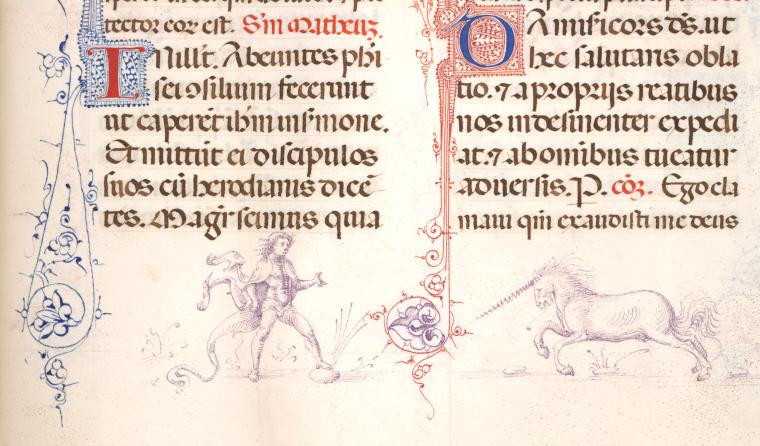 tector eoꝝ est. Sm̄ matheuꝫ.
IN illiᵗ. Abeuntes phi
sei ↄsilium fecerunt
ut caperēt ihm̄ in smone.
Et mittūt ei discipulos
suos cū herodianis dicē
tes. Magr̄ scimus quia
DA misicors ds̄. ut
hec salutaris obla
tio. ⁊ a proprijs reatibus
nos indesinenter expedi
at. ⁊ ab omībus tueatur
aduersis. P. cōꝫ. Ego cla
maui qm̄ exaudisti me deus